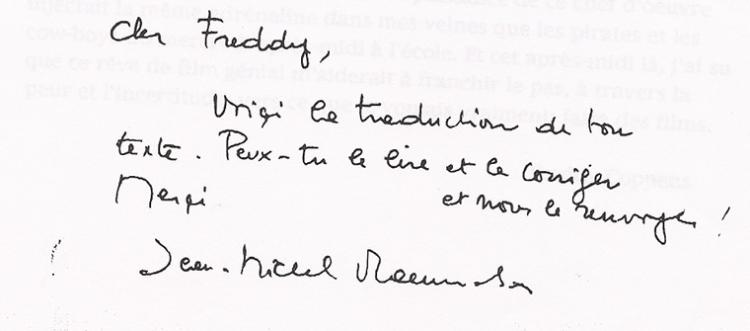 ce chef d'oeuvre
injectait la même adrénaline dans mes veines que les pirates et les
cow-boys midi à l'école. Et cet après-midi là, j'ai su
que ce rêve de film génial m'aiderait à franchir le pas, à travers la
peur et des films.
Coppens
Cher Freddy,
Voici la traduction de ton
texte. Peux-tu le lire et le corriger
Merci et nous le renvoyer !
Jean-Michel